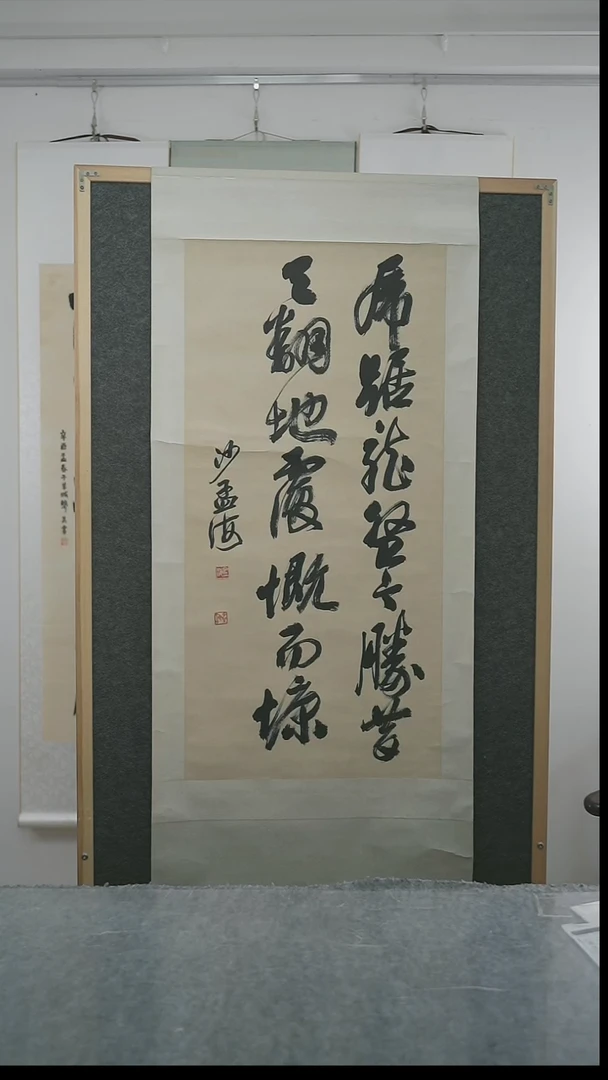 虎踞龍盤今勝昔
天翻地覆慨而慷
沙孟海